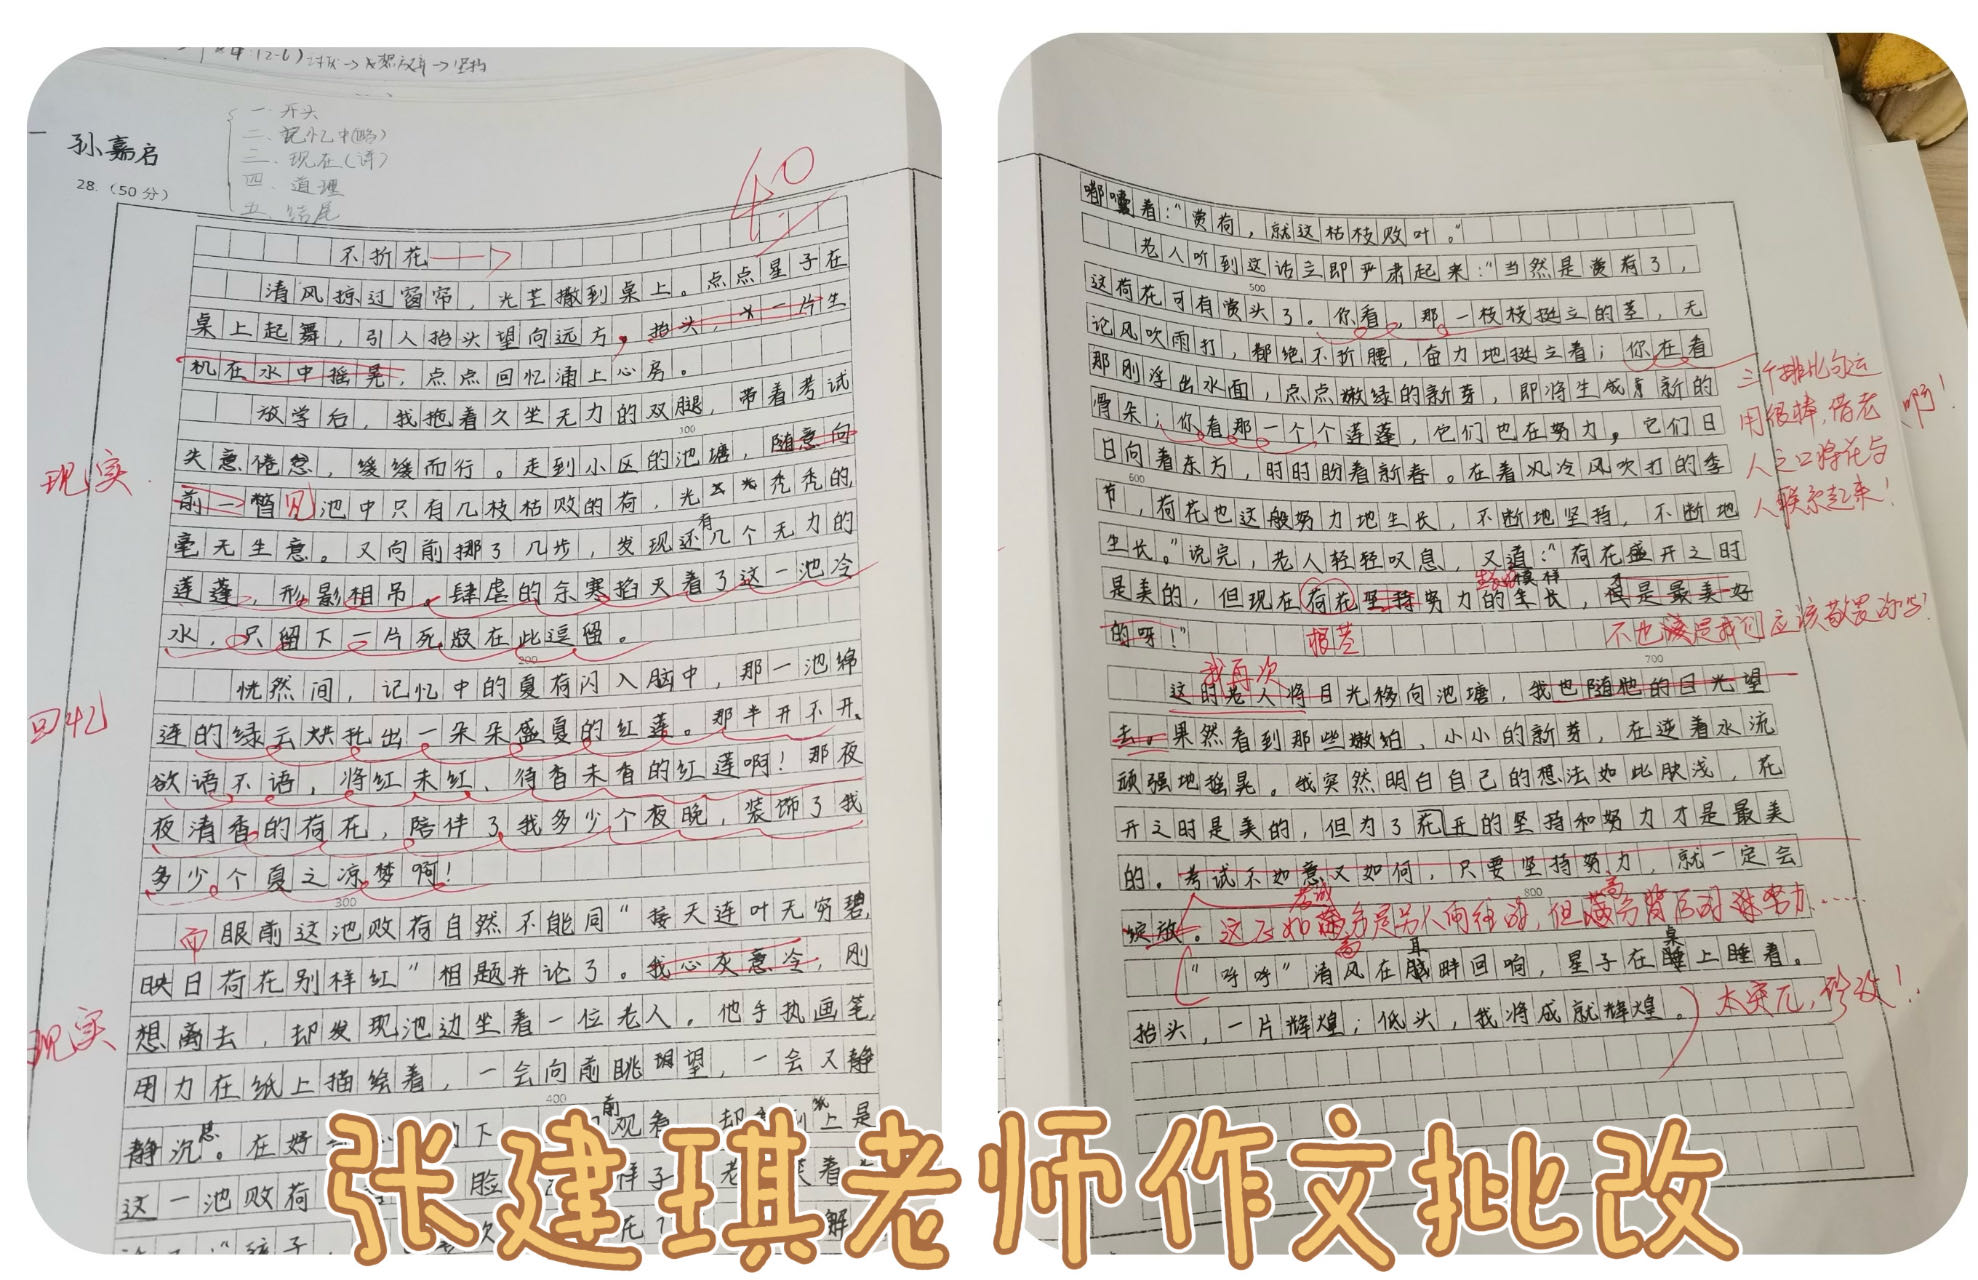 一、开头
二、记忆中(略)
三、现在(详)
四、道理
五、结尾
孙嘉启
28.（50分）
40
不折花
清风掠过窗帘，光芒撒到桌上。点点星子在
桌上起舞，引人抬头望向远方，抬头，一片生
机在水中摇晃，点点回忆涌上心房。
放学后，我拖着久坐无力的双腿，带着考试
100
失意倦怠，缓缓而行。走到小区的池塘，随意向
现实
前一瞥见池中只有几枝枯败的荷，光秃秃的，
毫无生意。又向前挪了几步，发现还有几个无力的
莲蓬，形影相吊。肆虐的余寒掐灭着了这一池冷
水，只留下一片死寂在此逗留。
200
恍然间，记忆中的夏荷闪入脑中，那一池绵
回忆
连的绿云烘托出一朵朵盛夏的红莲。那半开不开、
欲语不语，将红未红、待香未香的红莲啊！那夜
夜清香的荷花，陪伴了我多少个夜晚，装饰了我
多少个夏之凉梦啊！
300
而眼前这池败荷自然不能同“接天连叶无穷碧，
映日荷花别样红”相题并论了。我心灰意冷，刚
现实
想离去，却发现池边坐着一位老人。他手执画笔，
用力在纸上描绘着，一会向前眺望，一会又静
400
静沉思。在好
这一池败荷
嘟囔着：“赏荷，就这枯枝败叶。”
老人听到这话立即严肃起来：“当然是赏荷了，
500
这荷花可有赏头了。你看，那一枝枝挺立的茎，无
论风吹雨打，都绝不折腰，奋力地挺立着；你在看
那刚浮出水面，点点嫩绿的新芽，即将生成新的
骨朵；你看那一个个莲蓬，它们也在努力，它们日
日向着东方，时时盼着新春。在着风冷风吹打的季
600
节，荷花也这般努力地生长，不断地坚持，不断地
生长。”说完，老人轻轻叹息，又道：“荷花盛开之时
是美的，但现在荷花坚持努力的生长模样，但是最美好
的呀！”
根茎
不也该是我们应该敬畏的吗！
三个排比句运
用很棒，借老
人之口将花与
人联系起来！
啊！
700
我再次
这时老人将目光移向池塘，我也随他的目光望
去。果然看到那些嫩绿、小小的新芽，在逆着水流
顽强地摇晃。我突然明白自己的想法如此肤浅，花
开之时是美的，但为了花开的坚持和努力才是最美
的。考试不如意又如何，只要坚持努力，就一定会
800
绽放。
“呼呼”清风在耳畔回响，星子在桌上睡着。
抬头，一片辉煌；低头，我将成就辉煌。
太突兀，修改！
张建琪老师作文批改